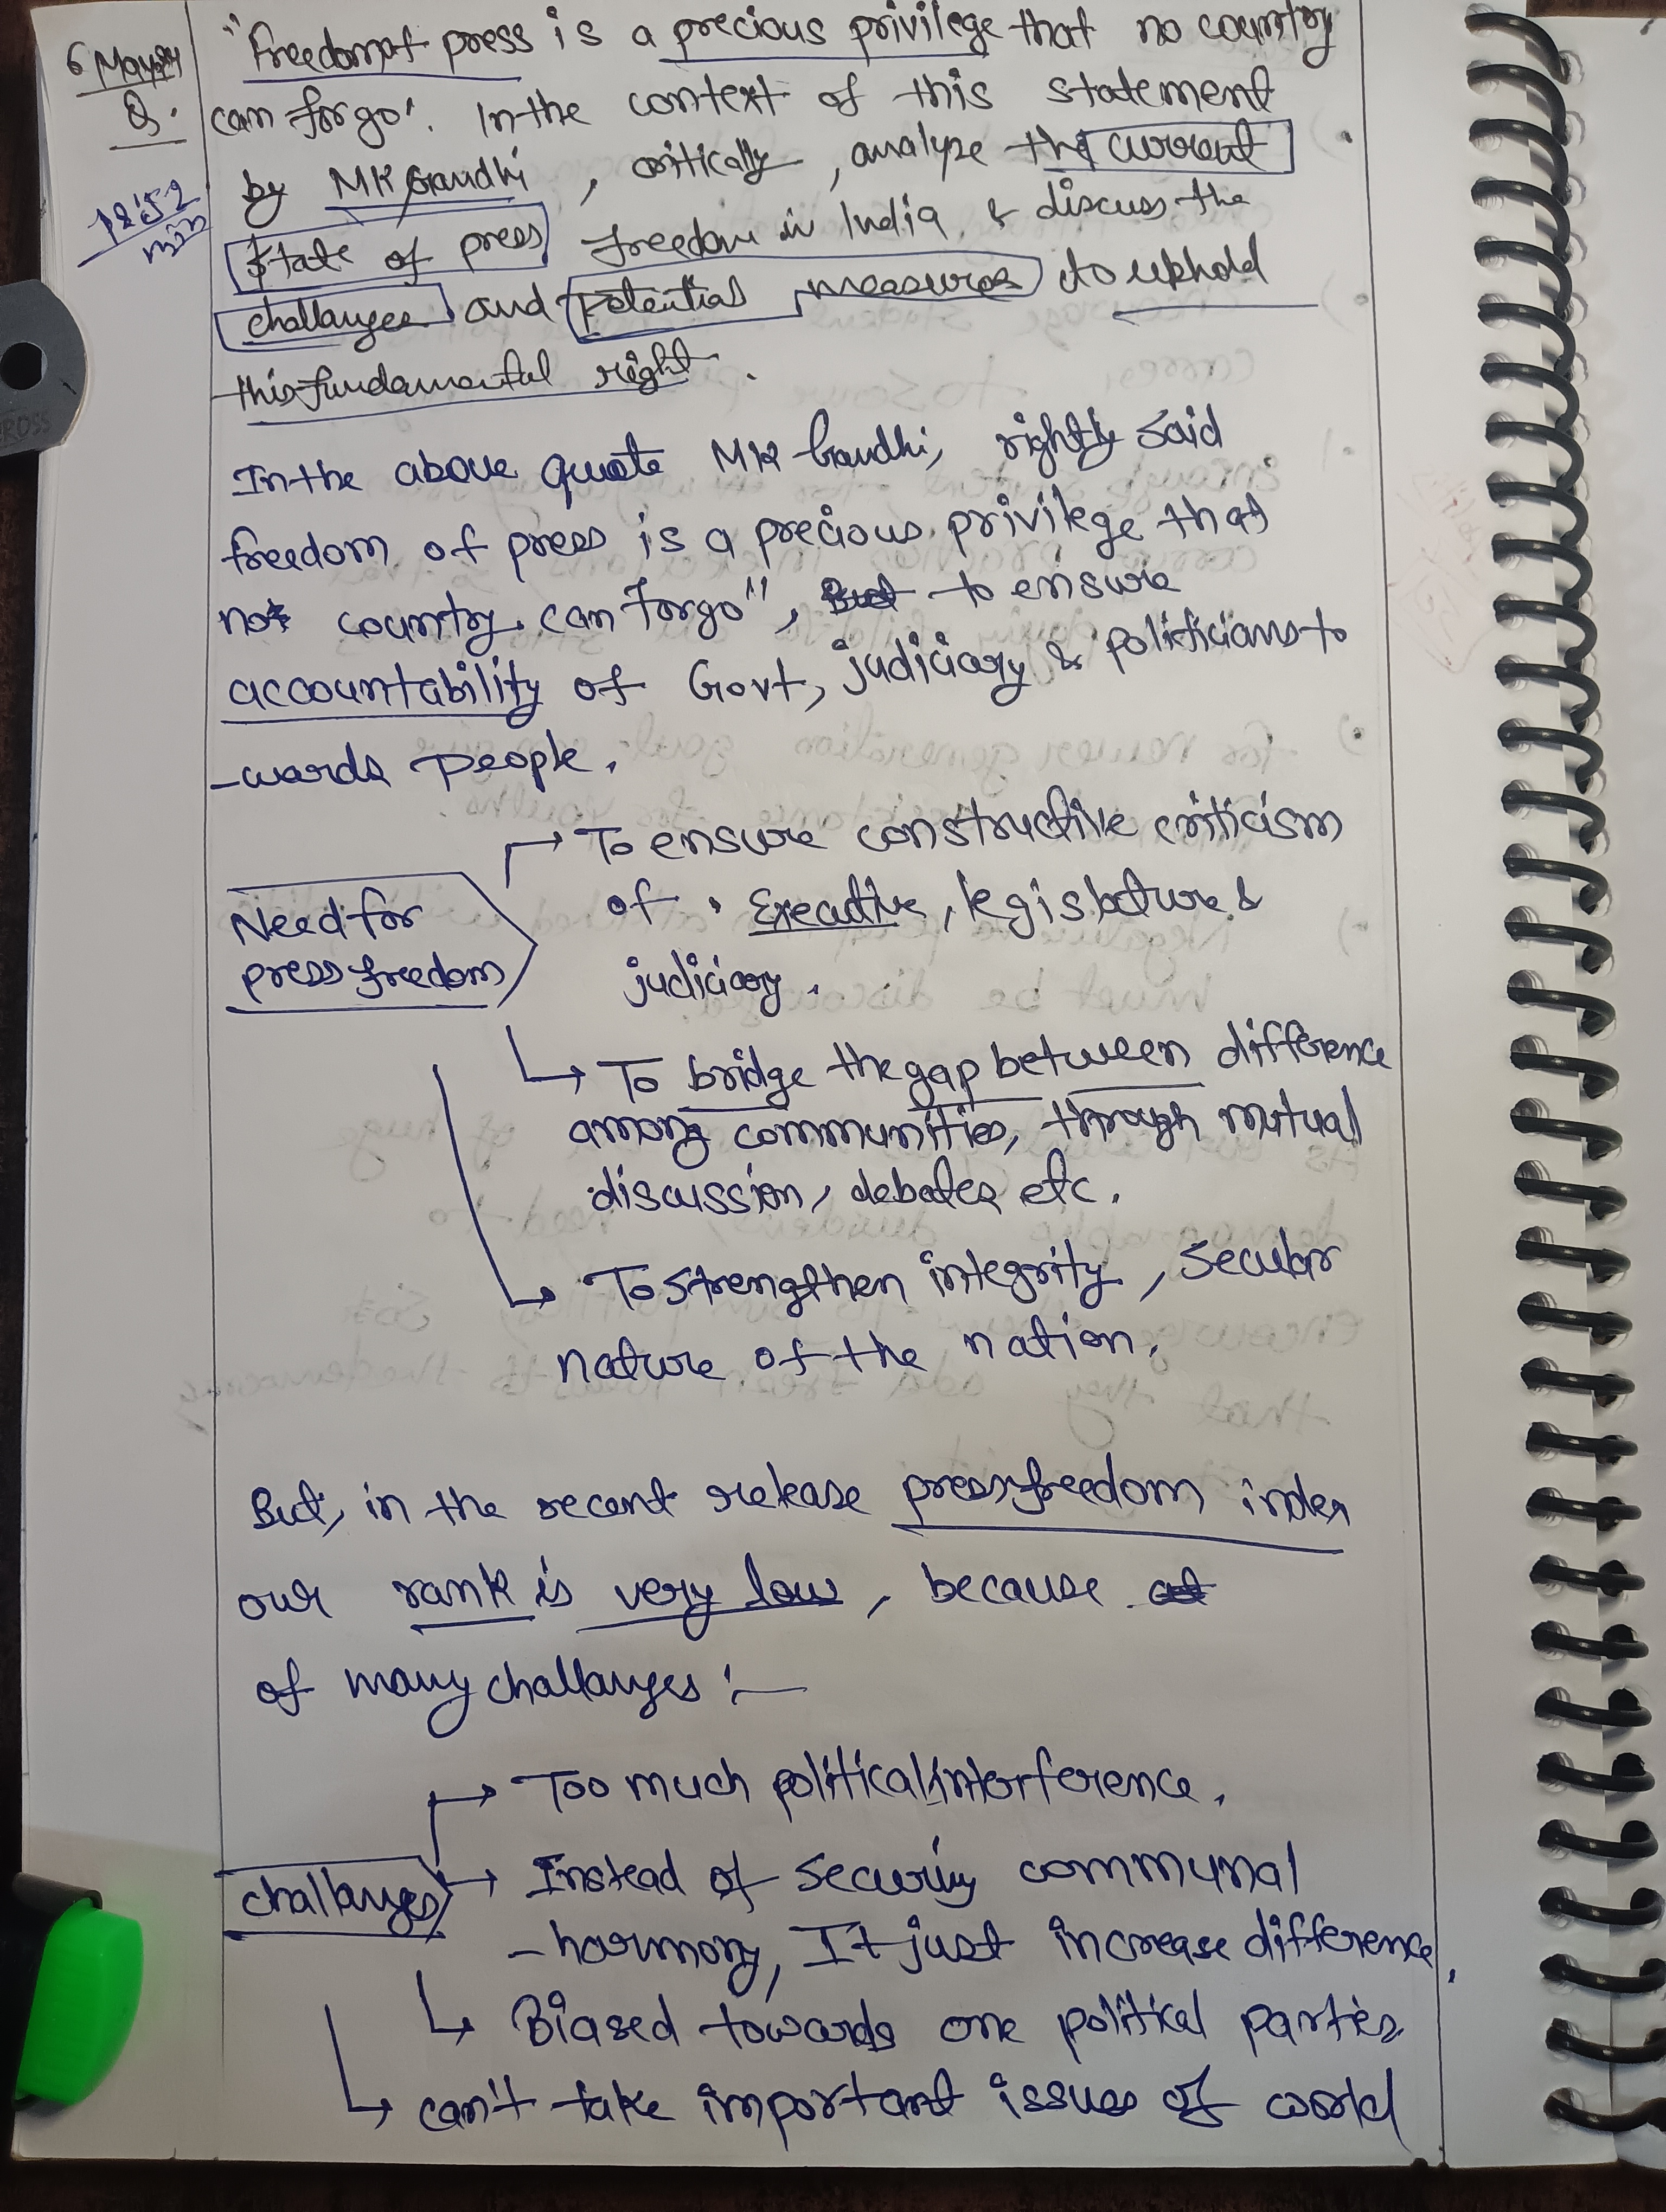 6 May 24
Q.
12:52
min
"Freedom of press is a precious privilege that no country
can forgo". In the context of this statement
by MK Gandhi, critically, analyze the current
state of press freedom in India & discuss the
challanges and potential measures to uphold
this fundamental right.
In the above quote MK Gandhi, rightly said
freedom of press is a precious privilege that
not country can forgo", But to ensure
accountability of Govt, judiciary & politicians to
-wards people.
Need for
press freedom
→ To ensure constructive criticism
of Executive, legislature &
judiciary.
→ To bridge the gap between difference
among communities, through mutual
discussion, debates etc.
→ To strengthen integrity, secular
nature of the nation.
But, in the recent release press freedom index
our rank is very low, because
of many challanges :—
challanges
→ Too much political interference.
→ Instead of securing communal
-harmony, It just increase difference.
→ Biased towards one political parties
→ can't take important issues of world
CROSS